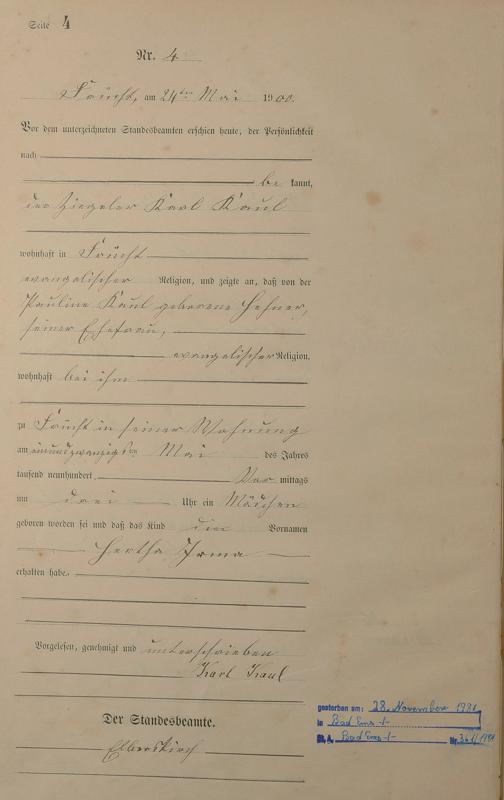 Seite 4
Nr. 4
Frücht, am 24ten Mai 1900.
Vor dem unterzeichneten Standesbeamten erschien heute, der Persönlichkeit
nach
be kannt,
der Ziegeler Karl Kaul
wohnhaft in Frücht
evangelischer Religion, und zeigte an, daß von der
Pauline Kaul geborene Hehner,
seiner Ehefrau,
evangelischer Religion,
wohnhaft bei ihm
zu Frücht in seiner Wohnung
am einundzwanzigsten Mai des Jahres
tausend neunhundert, Vor mittags
um drei Uhr ein Mädchen
geboren worden sei und daß das Kind die Vornamen
Hertha Irma
erhalten habe.
Vorgelesen, genehmigt und unterschrieben
Karl Kaul
Der Standesbeamte.
Elberskirch
gestorben am: 28. November 1981
in Bad Ems
St. A. Bad Ems Nr.